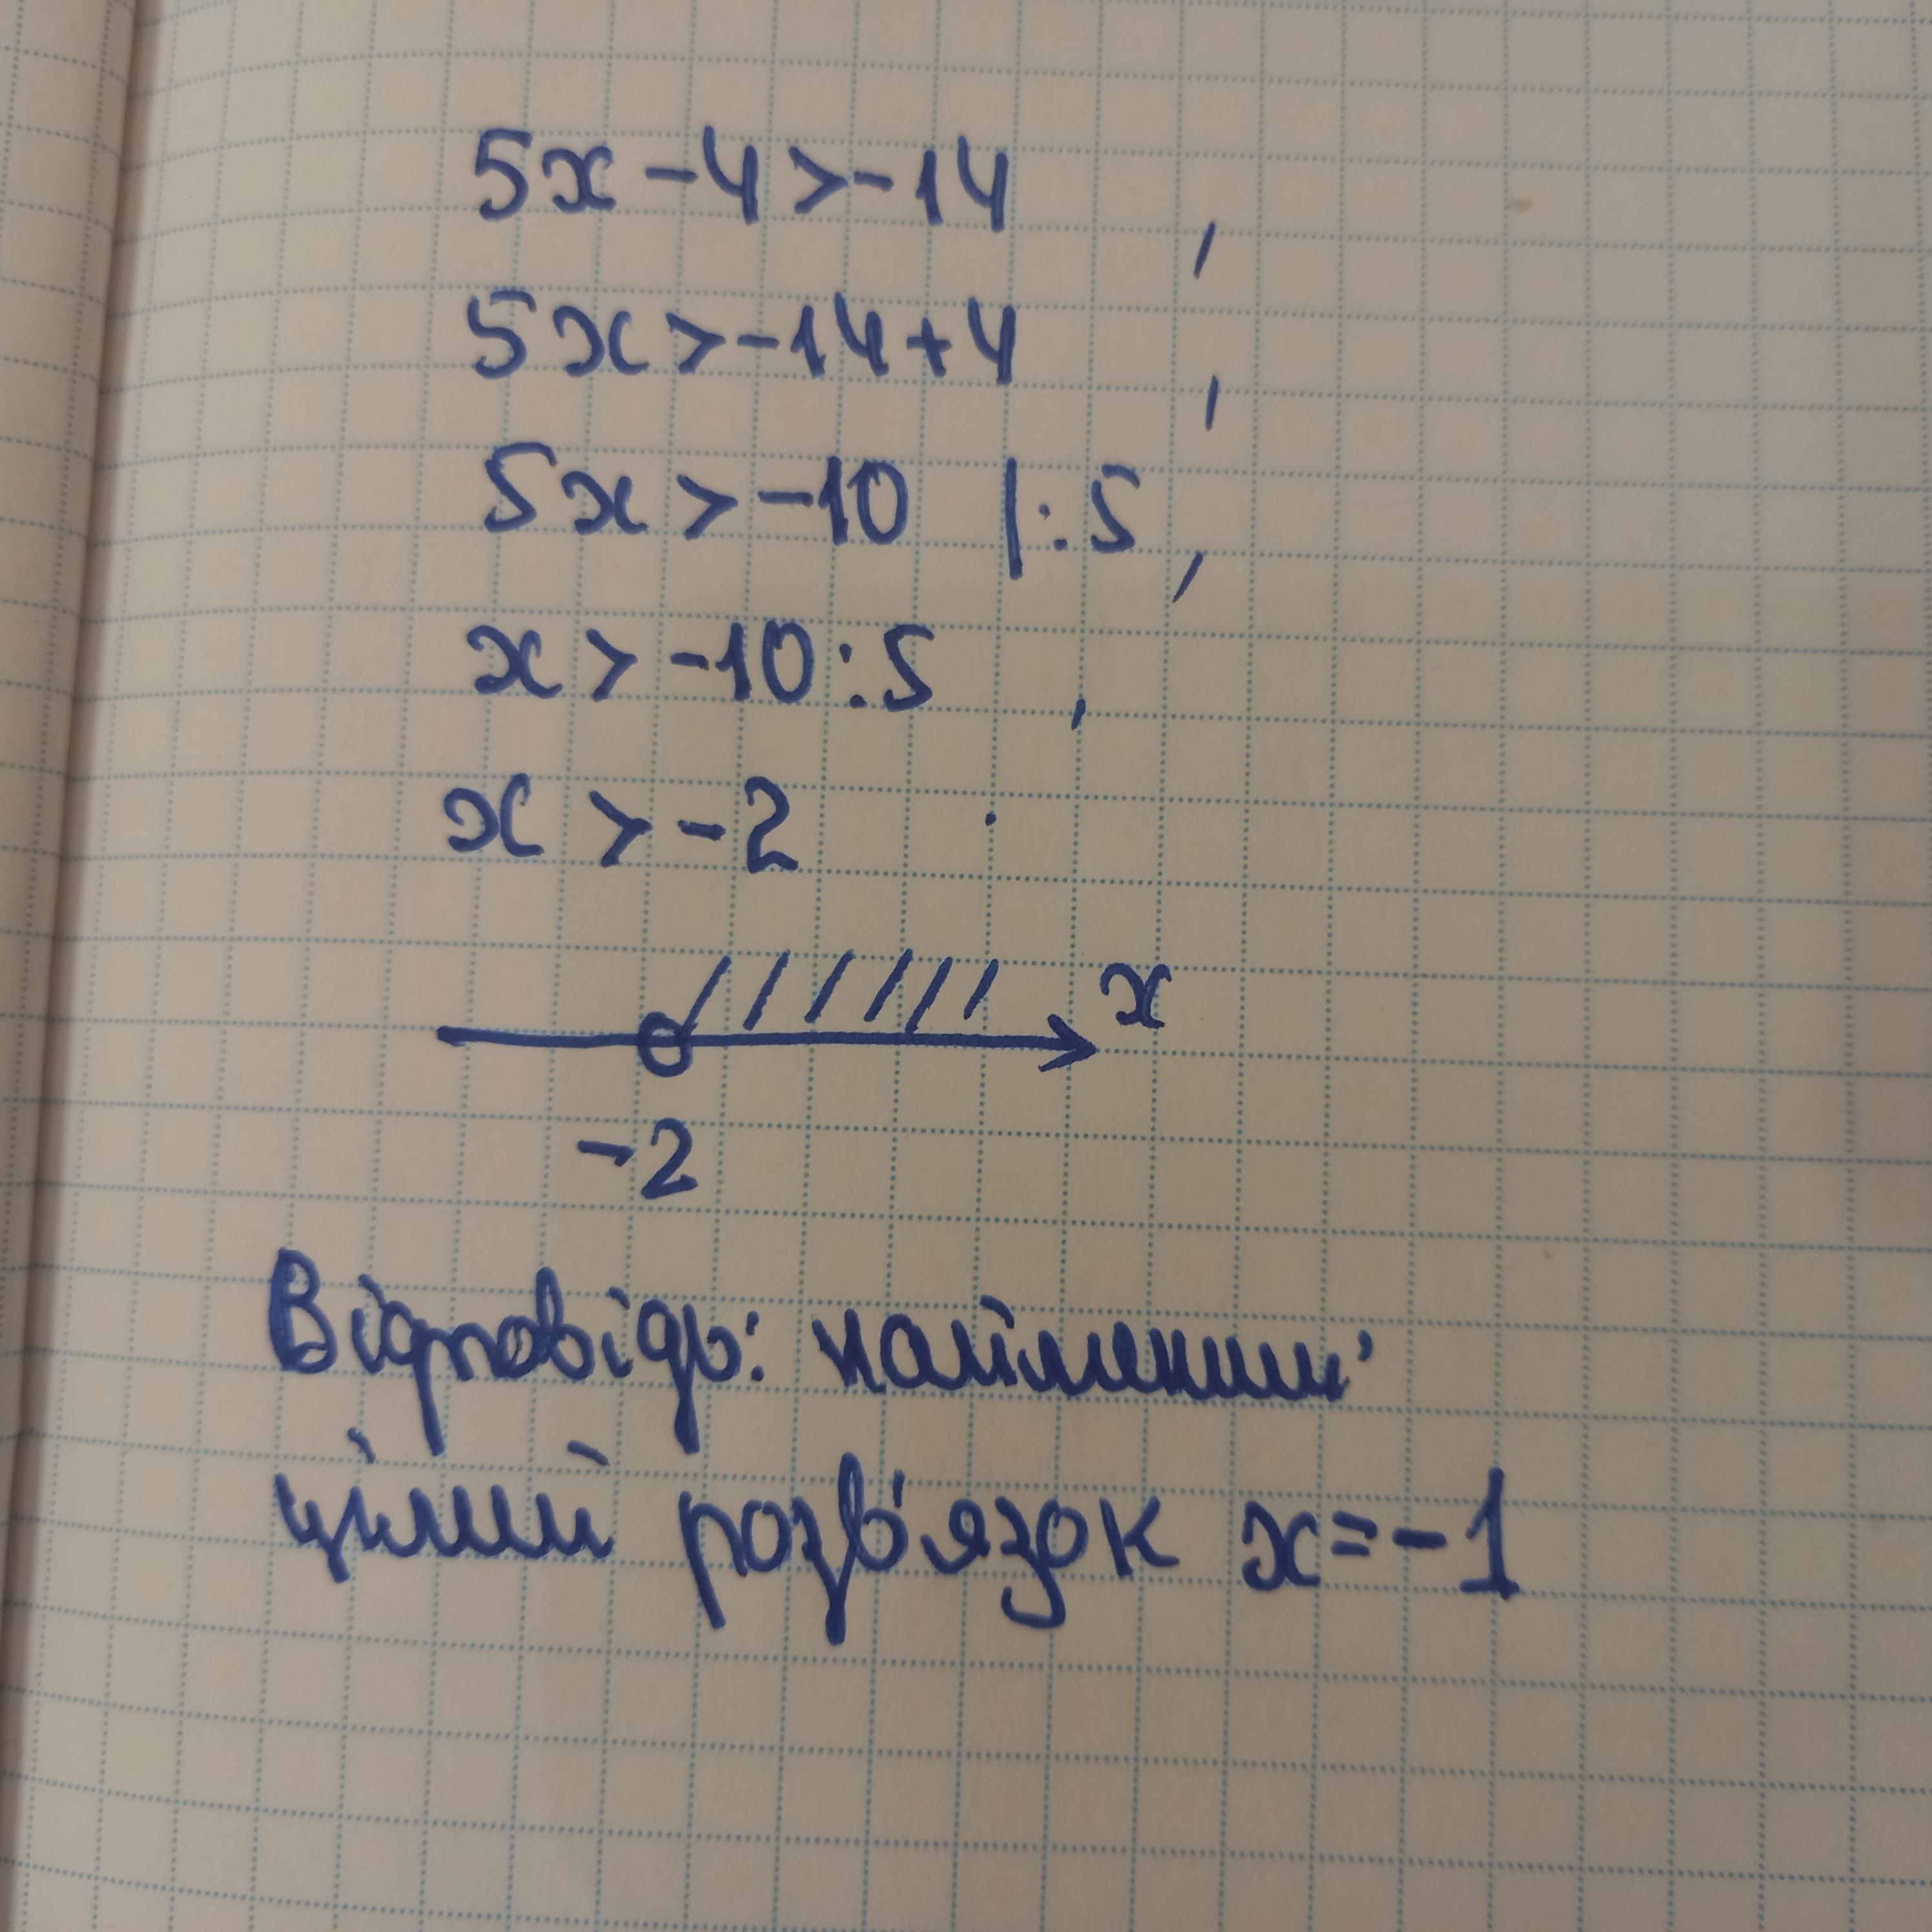 5x-4>-14 ,
5x>-14+4 ,
5x>-10 |:5,
x>-10:5 ,
x>-2 .
x
-2
Відповідь: найменший
цілий розв'язок x=-1